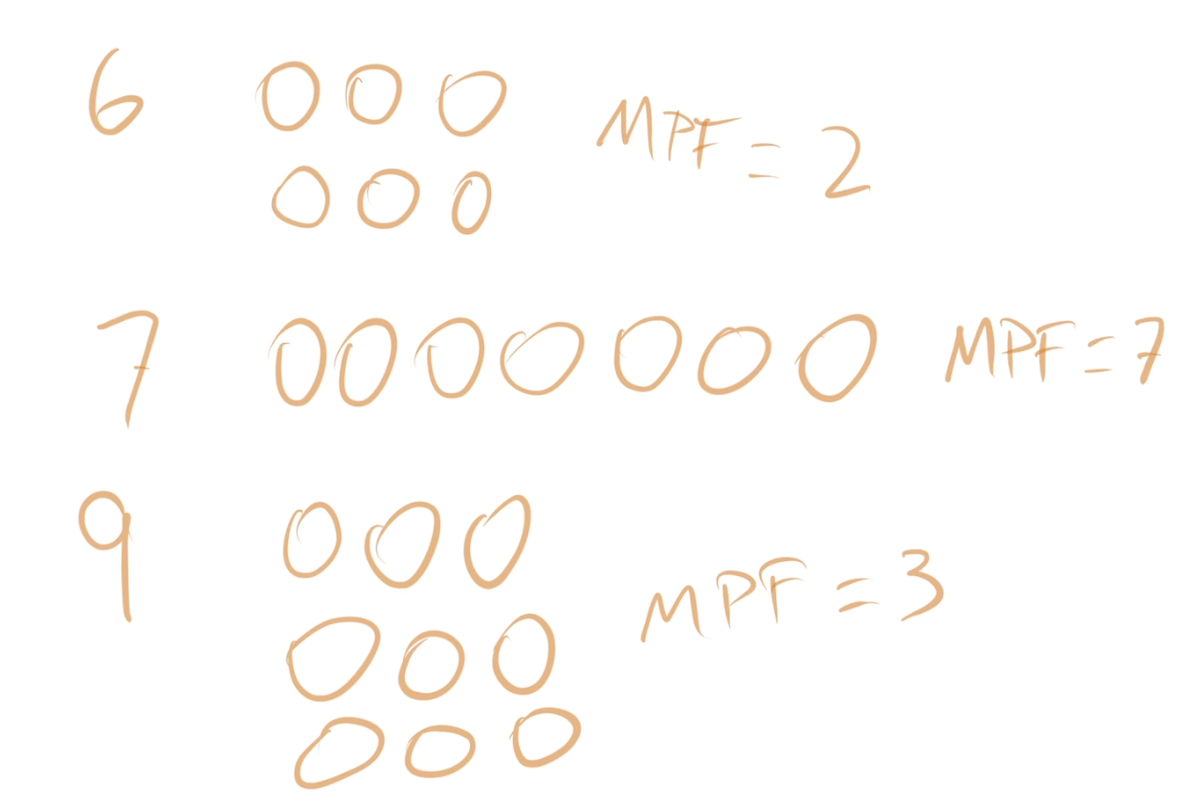 6 MPF = 2
7 MPF = 7
9 MPF = 3